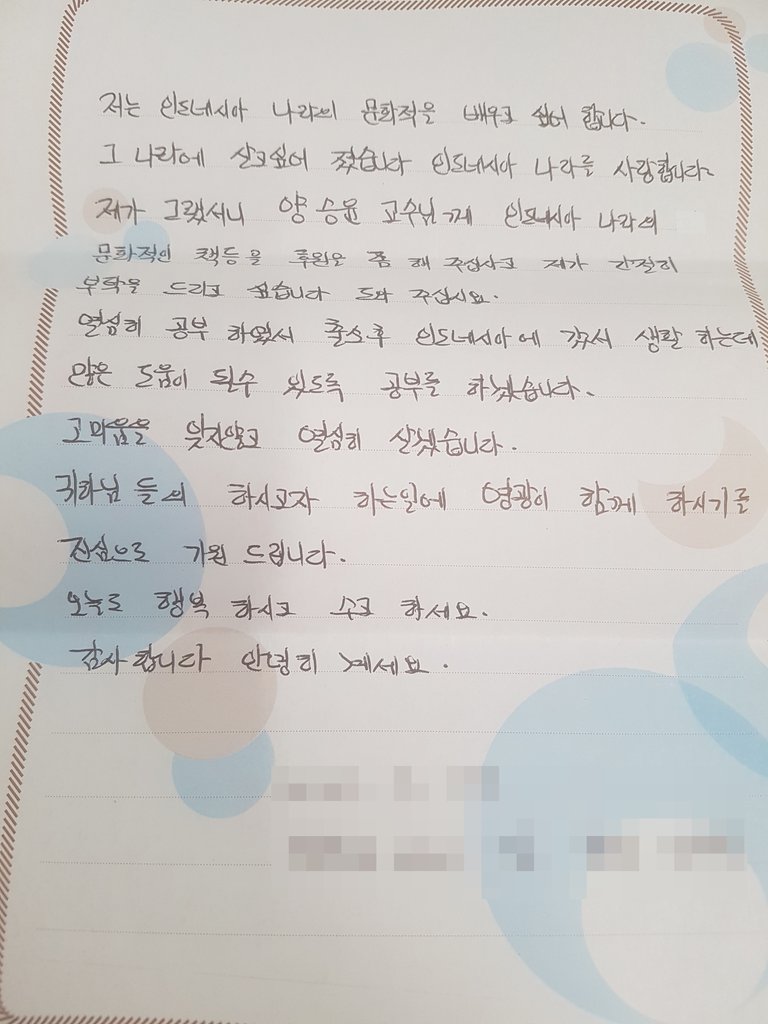 저는 인도네시아 나라의 문화적을 배우고 싶어 합니다.
그 나라에 살고싶어 졌습니다 인도네시아 나라를 사랑합니다.
제가 그랬서니 양승윤 교수님께 인도네시아 나라의
문화적인 책등을 후원은 좀 해 주십사고 제가 간절히
부탁을 드리고 싶습니다 도와 주십시요.
열심히 공부 하였서 출소후 인도네시아에 갔서 생활 하는데
많은 도움이 될수 있도록 공부를 하겠습니다.
고마움을 잊지않고 열심히 살겠습니다.
귀하님 들의 하시고자 하는일에 영광이 함께 하시기를
진심으로 기원 드립니다.
오늘도 행복 하시고 수고 하세요.
감사합니다 안녕히 계세요.